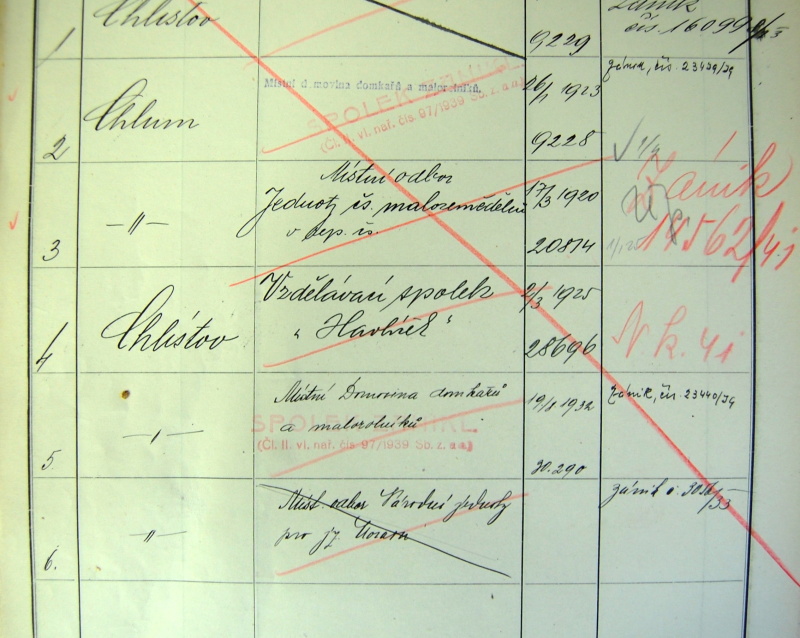 1 Chlístov 9229 Zánik
čís. 16099
2 Chlum
Místní domovina domkařů a malorolníků.
SPOLEK ZANIKL.
(Čl. II. vl. nař. čís. 97/1939 Sb. z. a n.)
26/1 1923
9228
Zánik, čís. 23439/39
3 —"—
Místní odbor
Jednoty čs. malozemědělců
v
17/3 1920
20814
Zánik
4 Chlístov
Vzdělávací spolek
„Havlíček"
2/3 1925
28696
N. k. 41
5. —"—
Místní Domovina domkařů
a malorolníků
SPOLEK ZANIKL.
(Čl. II. vl. nař. čís. 97/1939 Sb. z. a n.)
19/8 1932
30.290
Zánik, čís. 23440/39
6. —"—
Míst. odbor Národní jednoty
pro jz. Moravu
zánik č.